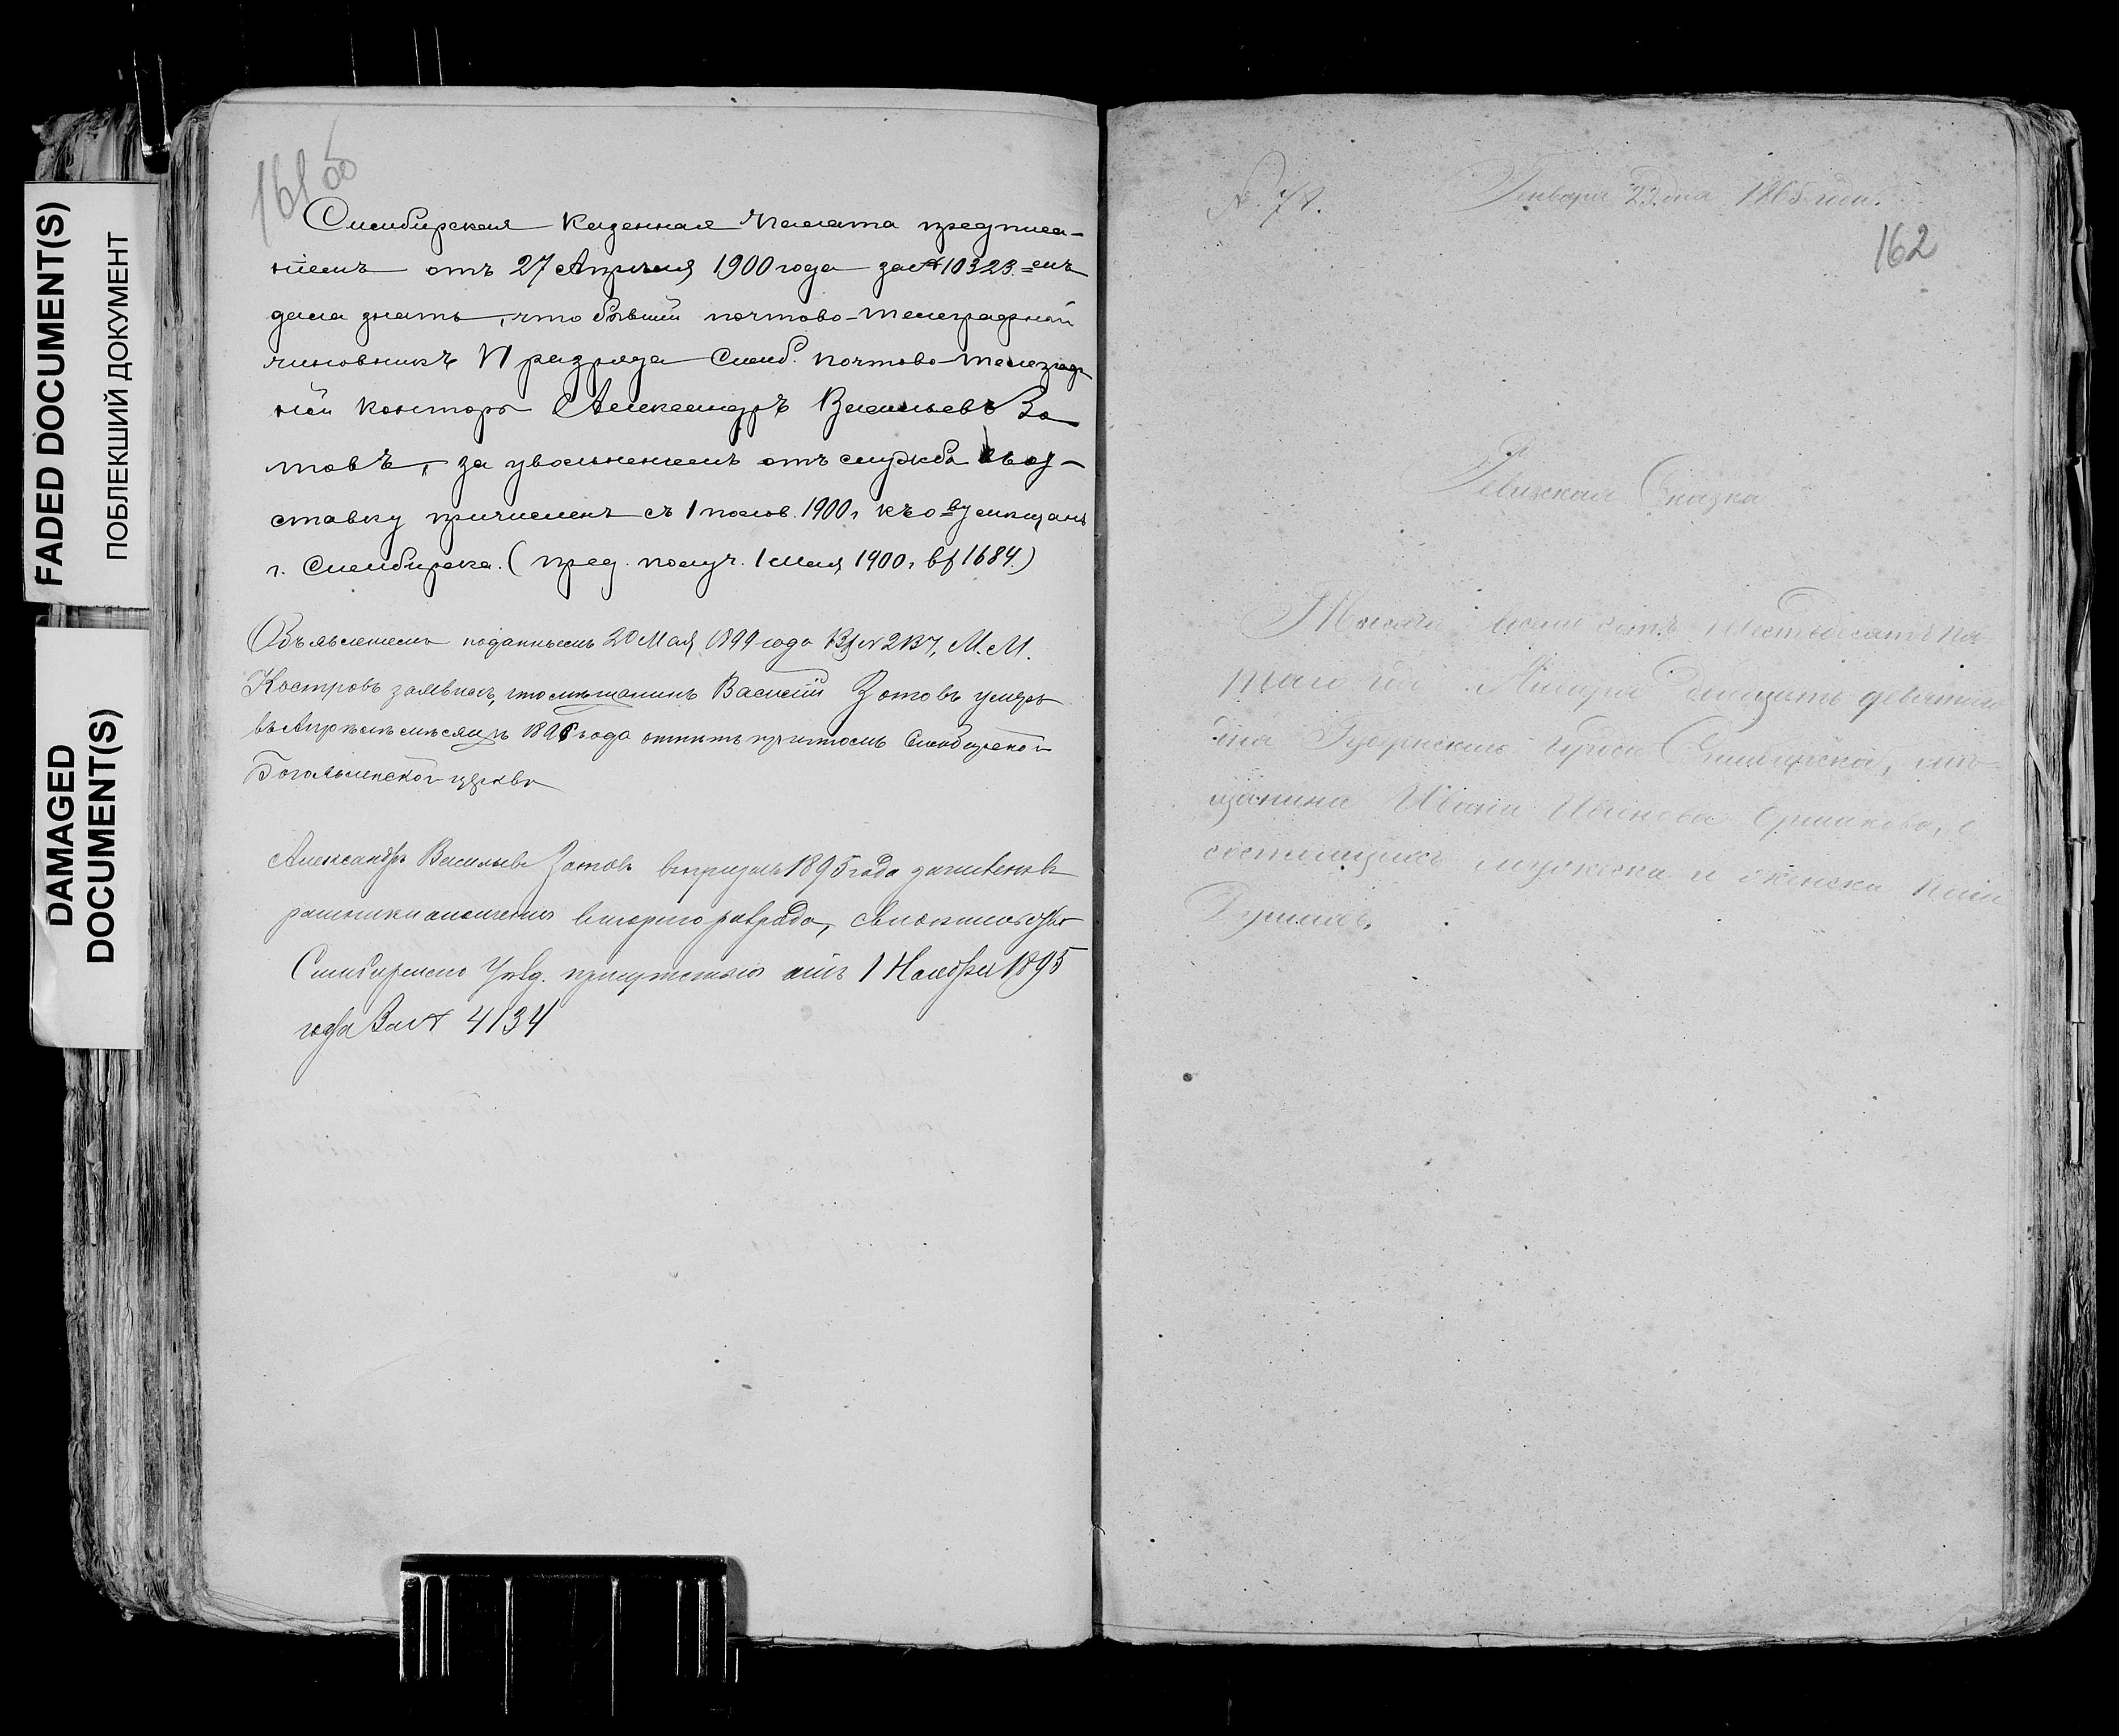 FADED DOCUMENT(S)
ПОБЛЕКШИЙ ДОКУМЕНТ
DAMAGED
DOCUMENT(S)
161 об
Симбирская Казенная Палата предписа-
ніемъ отъ 27 Апрѣля 1900 года за № 10323-емъ
дала знать, что бывшій почтово-телеграфный
чиновникъ VI разряда Симб. почтово-телеграф
ной конторы Александръ Васильевъ Зо
товъ, за увольненіемъ отъ службы въ от-
ставку причисленъ съ 1 полов. 1900 г. къ о-ву мѣщанъ
г. Симбирска. (пред. получ. 1 мая 1900 г. вх 1684)
Объявленіемъ поданнымъ 20 Мая 1899 года М. М.
Костровъ заявилъ, что мѣщанинъ Василій Зотовъ умеръ
въ Апрѣлѣ мѣсяцѣ 1898 года отпѣтъ причтомъ Симбирской
Богоявленской церкви
Александръ Васильевъ Зотовъ въ призывъ 1895 года зачисленъ въ
ратники ополченія втораго разряда, свидѣтельство
Симбирскаго Уѣзд. присутствія отъ 1 Ноября 1895
года За № 4134
№ 78.
Генваря 23 дня 1865 года.
162
Ревизская Сказка
Тысяча восемь сотъ шестьдесятъ пя-
таго года Января двадцать девятаго
дня Губернскаго города Симбирска, мѣ-
щанина Ивана Иванова Ермакова, о
состоящихъ мужеска и женска пола
Душахъ.